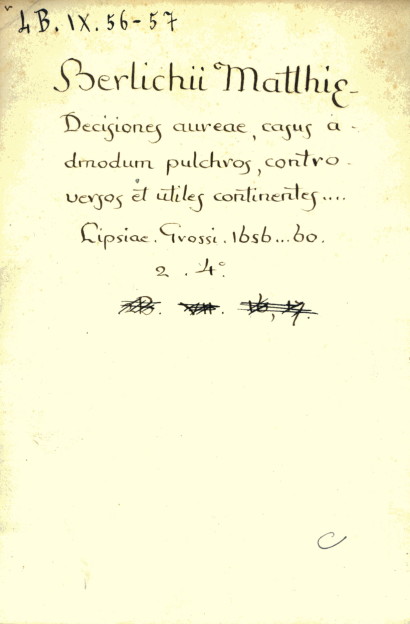 4B. IX. 56-57
Berlichii Matthię
Decisiones aureae, casus a-
dmodum pulchros, contro-
versos et utiles continentes....
Lipsiae. Grossi. 1656...60.
2. 4°.
C